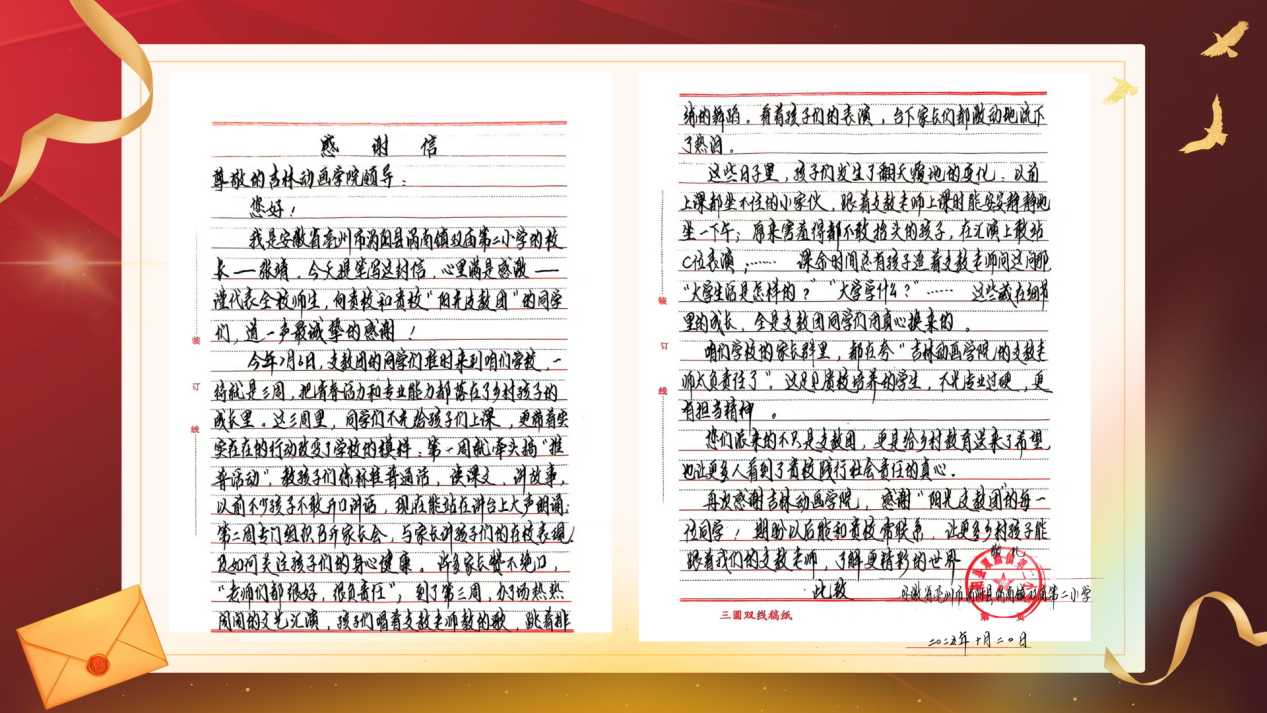 感谢信
尊敬的吉林动画学院领导：
您好！
我是安徽省亳州市涡阳县涡南镇双庙第二小学的校
长——张靖，今天提笔写这封信，心里满是感激——
谨代表全校师生，向贵校和贵校“阳光支教团”的同学
们，道一声最诚挚的感谢！
今年7月6日，支教团的同学们准时来到咱们学校，一
待就是三周，把青春活力和专业能力都落在了乡村孩子的
成长里。这三周里，同学们不光给孩子们上课，更带着实
实在在的行动改变了学校的模样：第一周就牵头搞“推
普活动”，教孩子们练标准普通话，读课文，讲故事，
以前不少孩子不敢开口讲话，现在能站在讲台上大声朗诵；
第二周专门组织召开家长会，与家长讲孩子们的在校表现
及如何关注孩子们的身心健康。许多家长赞不绝口，
“老师们都很好，很负责任”；到了第三周，办了场热热
闹闹的文艺汇演，孩子们唱着支教老师教的歌，跳着排
练的舞蹈。看着孩子们的表演，台下家长们都激动地流下
了热泪。
这些日子里，孩子们发生了翻天覆地的变化：以前
上课都坐不住的小家伙，跟着支教老师上课时能安安静静地
坐一下午；原来害羞得都不敢抬头的孩子，在汇演上敢站
C位表演；…… 课余时间还有孩子追着支教老师问这问那
“大学生活是怎样的？”“大学学什么？”…… 这些藏在细节
里的成长，全是支教团同学们用真心换来的。
咱们学校的家长群里，都在夸“吉林动画学院的支教老
师太负责任了”。这足见贵校培养的学生，不光专业过硬，更
有担当精神。
您们派来的不只是支教团，更是给乡村教育送来了希望，
也让更多人看到了贵校践行社会责任的真心。
再次感谢吉林动画学院，感谢“阳光支教团”的每一
位同学！期盼以后能和贵校常联系，让更多乡村孩子能
跟着我们的支教老师，了解更精彩的世界
此致
敬礼
安徽省亳州市涡阳县涡南镇双庙第二小学
二〇二五年十月二〇日
装
订
线
装
订
线
三圆双线稿纸
第 页